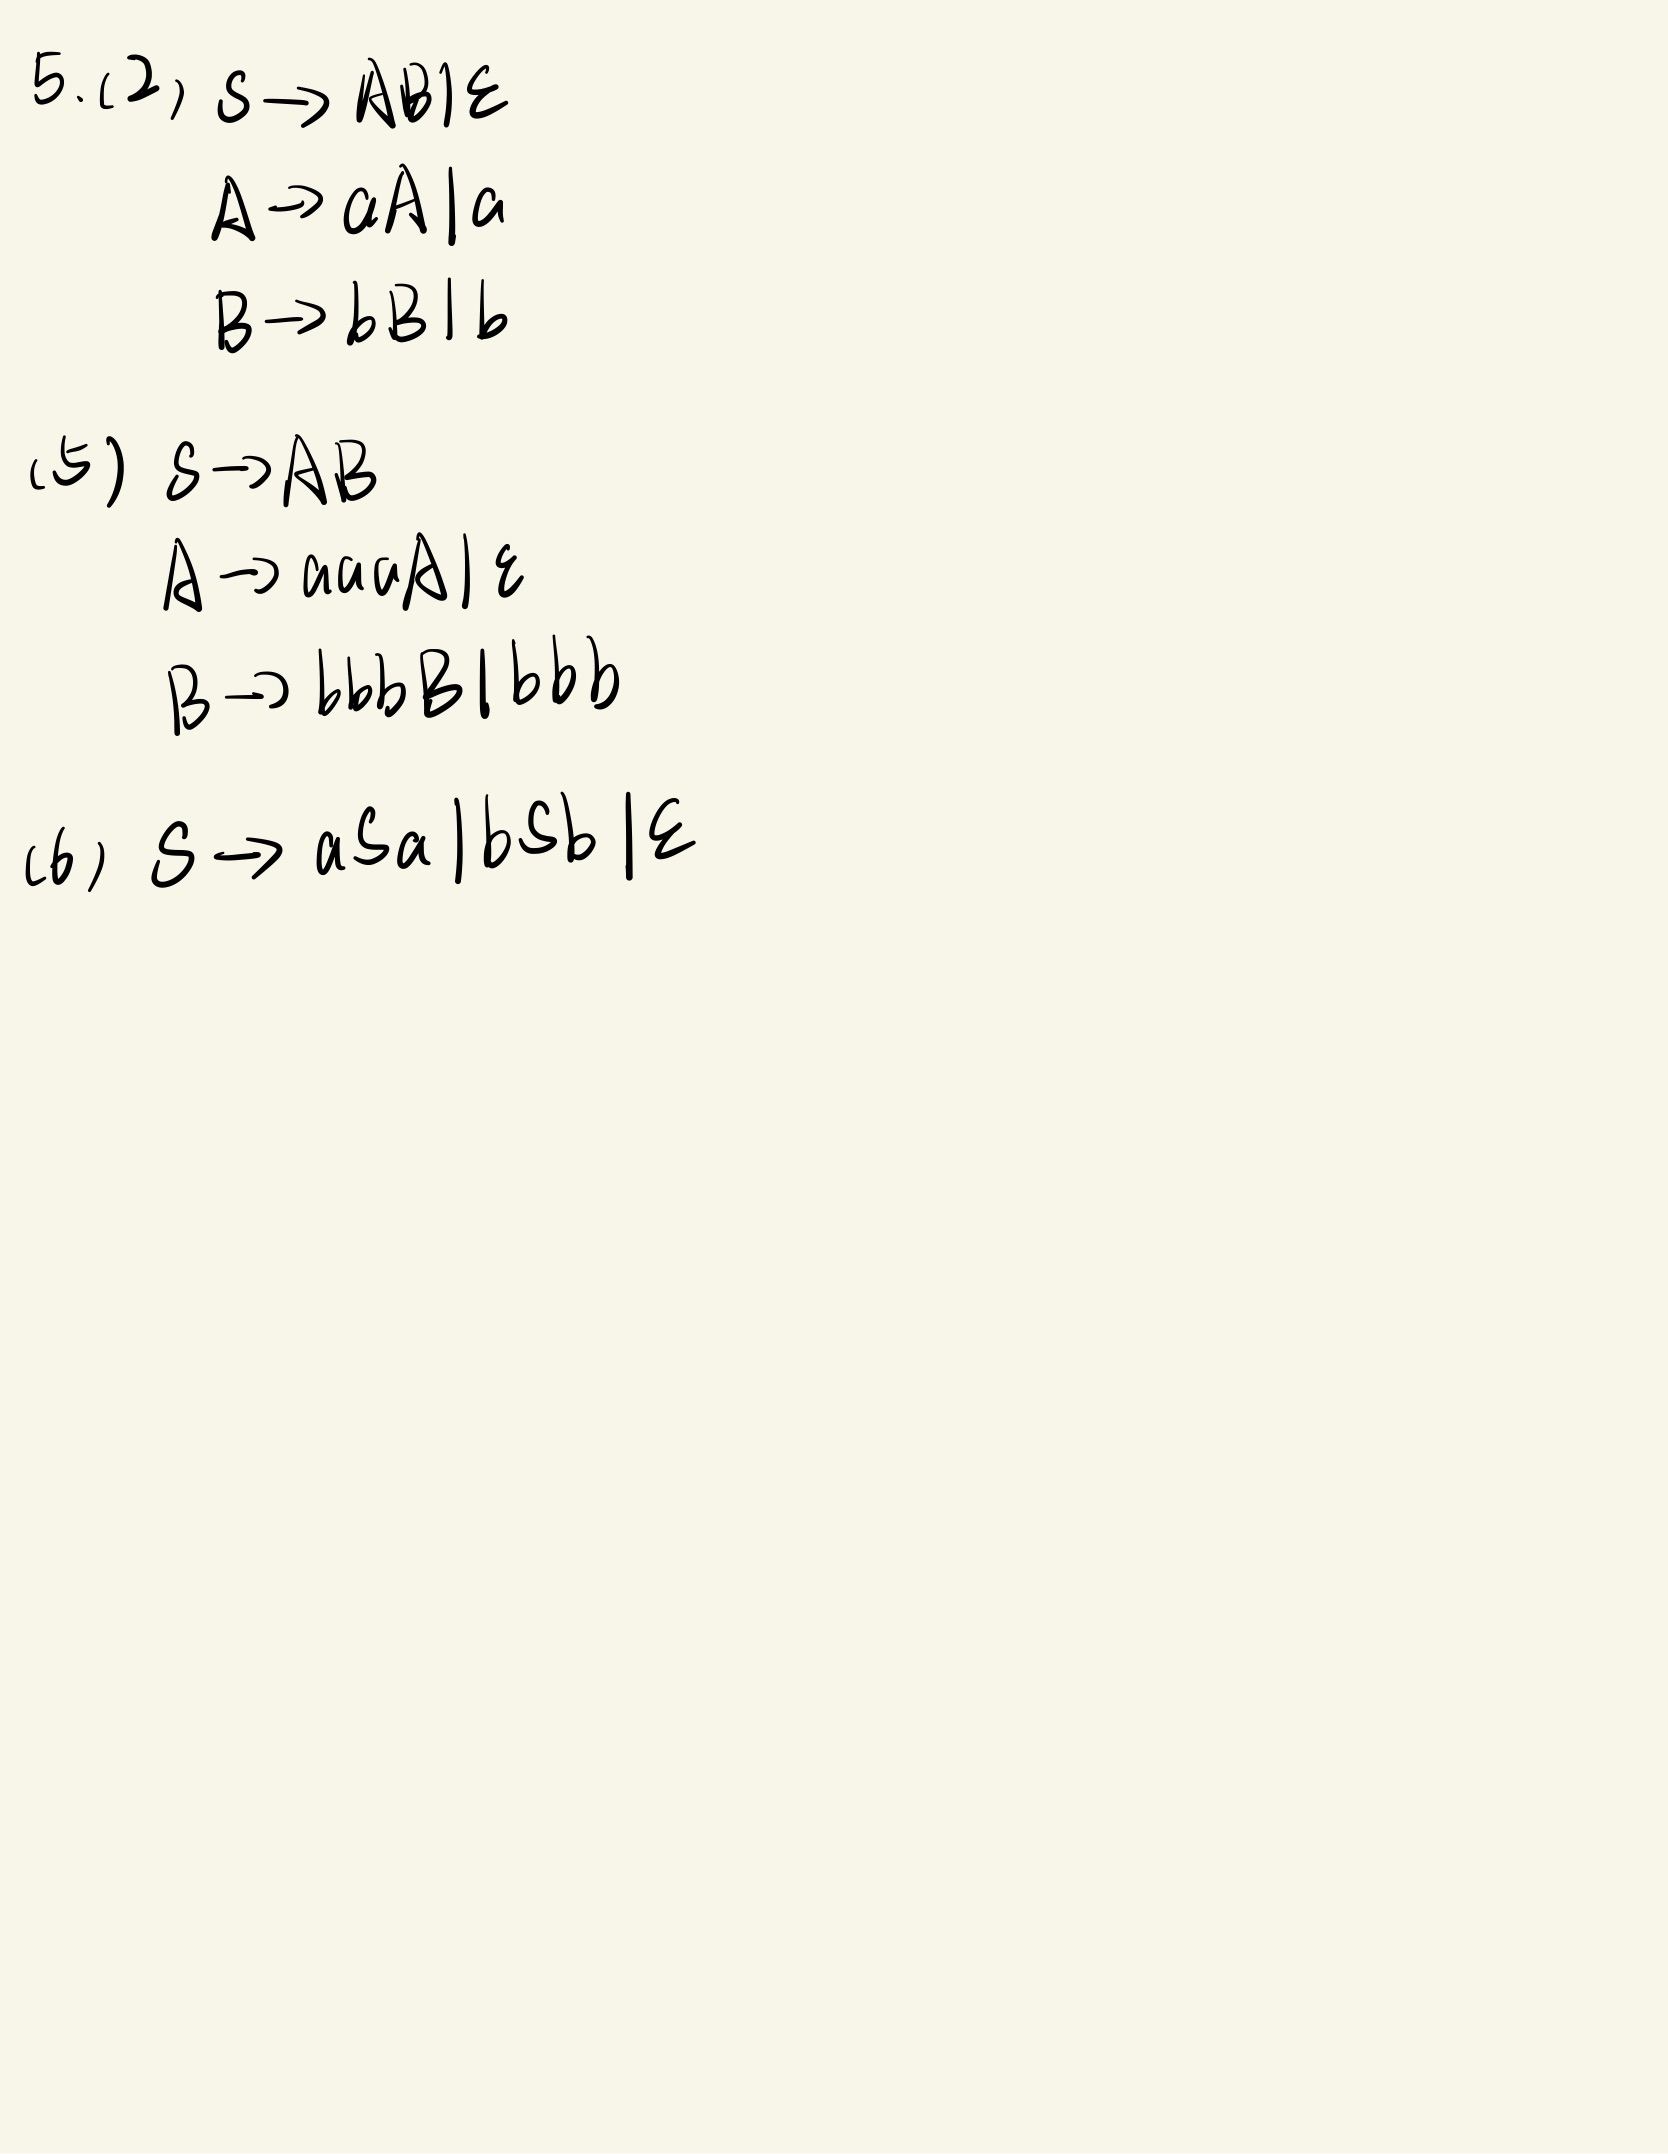 5.(2) S→AB|ε
A→aA|a
B→bB|b
(5) S→AB
A→aaaA|ε
B→bbbB|bbb
(6) S→aSa|bSb|ε